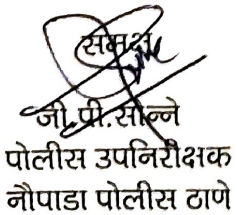 समक्ष
जी.पी.सोन्ने
पोलीस उपनिरीक्षक
नौपाडा पोलीस ठाणे